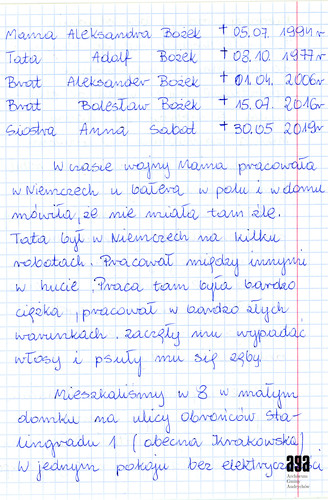 Mama Aleksandra Bożek † 05.07. 1994r
Tata Adolf Bożek † 08.10. 1977r
Brat Aleksander Bożek † 01.04. 2006r
Brat Bolesław Bożek † 15.07. 2016r
Siostra Anna Sabat † 30.05 2019r
W czasie wojny Mama pracowała
w Niemczech u bałera w polu i w domu
mówiła, że nie miała tam źle.
Tata był w Niemczech na kilku
robotach. Pracował między innymi
w hucie. Praca tam była bardzo
ciężka, pracował w bardzo złych
warunkach. Zaczęły mu wypadać
włosy i psuły mu się zęby
Mieszkaliśmy w 8 w małym
domku na ulicy Obrońców Sta-
lingradu 1 (obecna Krakowska)
w jednym pokoju bez elektryczności
aga
Archiwum
Gminy